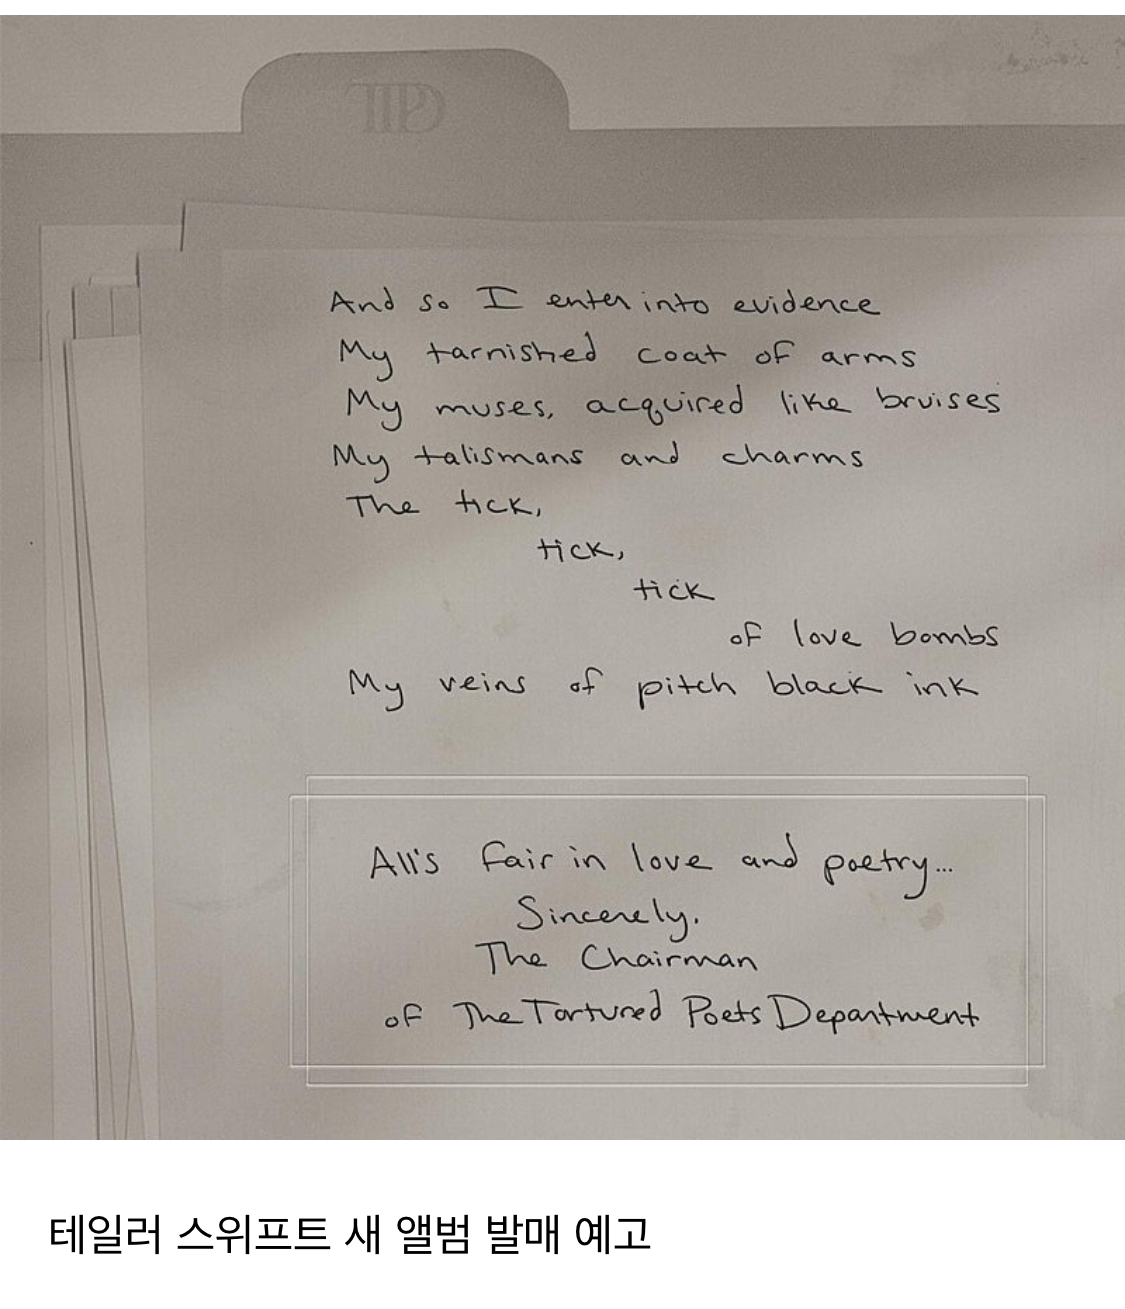 TTPD
And so I enter into evidence
My tarnished coat of arms
My muses, acquired like bruises
My talismans and charms
The tick,
tick,
tick
of love bombs
My veins of pitch black ink
All's fair in love and poetry...
Sincerely,
The Chairman
of The Tortured Poets Department
테일러 스위프트 새 앨범 발매 예고